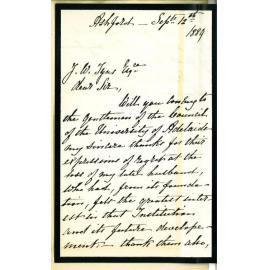 Ashford - Sept. 12th
1889
J. W. Tyas Esqre
Dear Sir,
Will you convey to
the Gentlemen of the Council
of the University of Adelaide
my sincere thanks for their
expressions of regret at the
loss of my late husband,
who had, from its founda-
tion, felt the greatest inter-
est in that Institution
and its future develope-
ment. - thank them also,